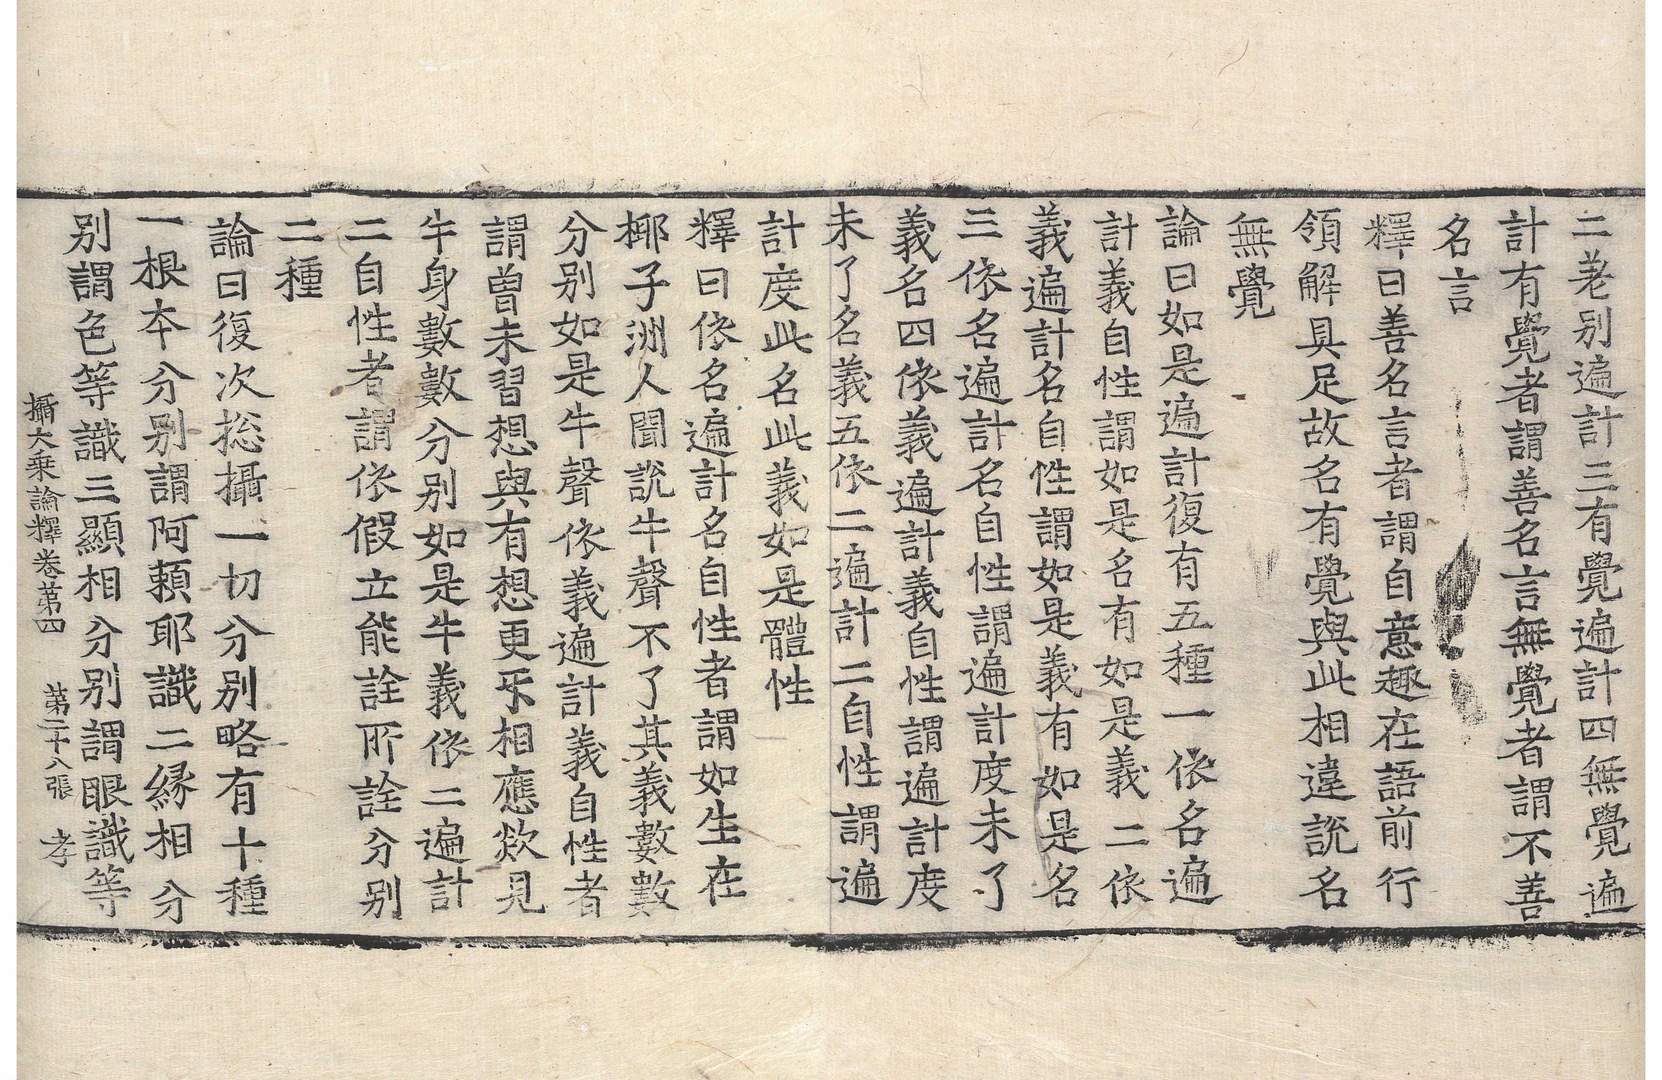 二差別遍計三有覺遍計四無覺遍
計有覺者謂善名言無覺者謂不善
名言
釋曰善名言者謂自意趣在語前行
領解具足故名有覺與此相違說名
無覺
論曰如是遍計復有五種一依名遍
計義自性謂如是名有如是義二依
義遍計名自性謂如是義有如是名
三依名遍計名自性謂遍計度未了
義名四依義遍計義自性謂遍計度
未了名義五依二遍計二自性謂遍
計度此名此義如是體性
釋曰依名遍計名自性者謂如生在
椰子洲人聞說牛聲不了其義數數
分別如是牛聲依義遍計義自性者
謂曾未習想與有想更互相應欻見
牛身數數分別如是牛義依二遍計
二自性者謂依假立能詮所詮分別
二種
論曰復次揔攝一切分別略有十種
一根本分別謂阿賴耶識二緣相分
別謂色等識三顯相分別謂眼識等
攝大乘論釋卷第四 第二十八張 孝